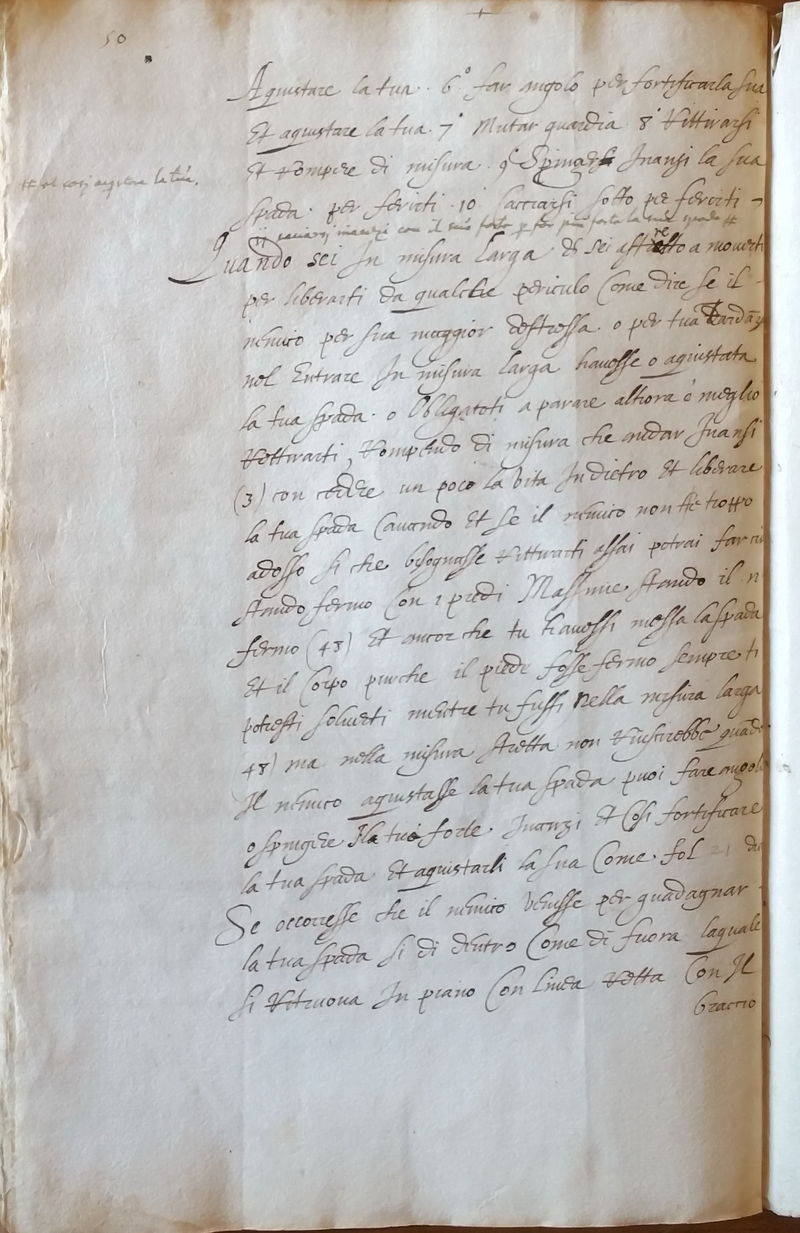 50
Aquistare la tua. 6° far angolo per fortificarla sua
Et aquistare la tua. 7° Mutar guardia 8° Rittirarsi
Et rompere di misura 9° Spingere Inanzi la sua
# et cosj aqistare la tua.
spada. per ferirti. 10 Cacciarsi sotto per ferirti
11 cacciarsj inanzi con il suo forte per far più forte la sua spada #
Quando sei In misura larga Et sei astretto a moverti
per liberarti da qualche periculo Come dire se il
nemico per sua maggior destressa. o per tua
nel Entrare In misura larga havesse o aquistata
la tua spada. o Obligatoti a parare alhora è meglio
Rettirarti, Rompendo di misura che andar Inansi
(3) con cedere un poco la vita Indietro Et liberare
la tua spada Cavando Et se il nemico non fie troppo
adosso si che bisognasse Ritirarti assai potrai far ciò
stando fermo Con i piedi Massime stando il n
fermo (48) Et ancor che tu havessi messa la spada
Et il Corpo purche il piede fosse fermo sempre ti
potresti solverti mentre tu fussi Nella misura larga
48) ma nella misura stretta non Riuscirebbe quado
Il nemico aquistasse la tua spada puoi fare angolo
o spingere Il tuo forte Inanzi Et Cosi fortificare
la tua spada Et aquistarli la sua Come. fol 21
Se occorresse che il nemico venisse per guadagnar
la tua spada si di dentro Come di fuora laquale
si Ritruova In piano Con linea Retta Con Il
braccio